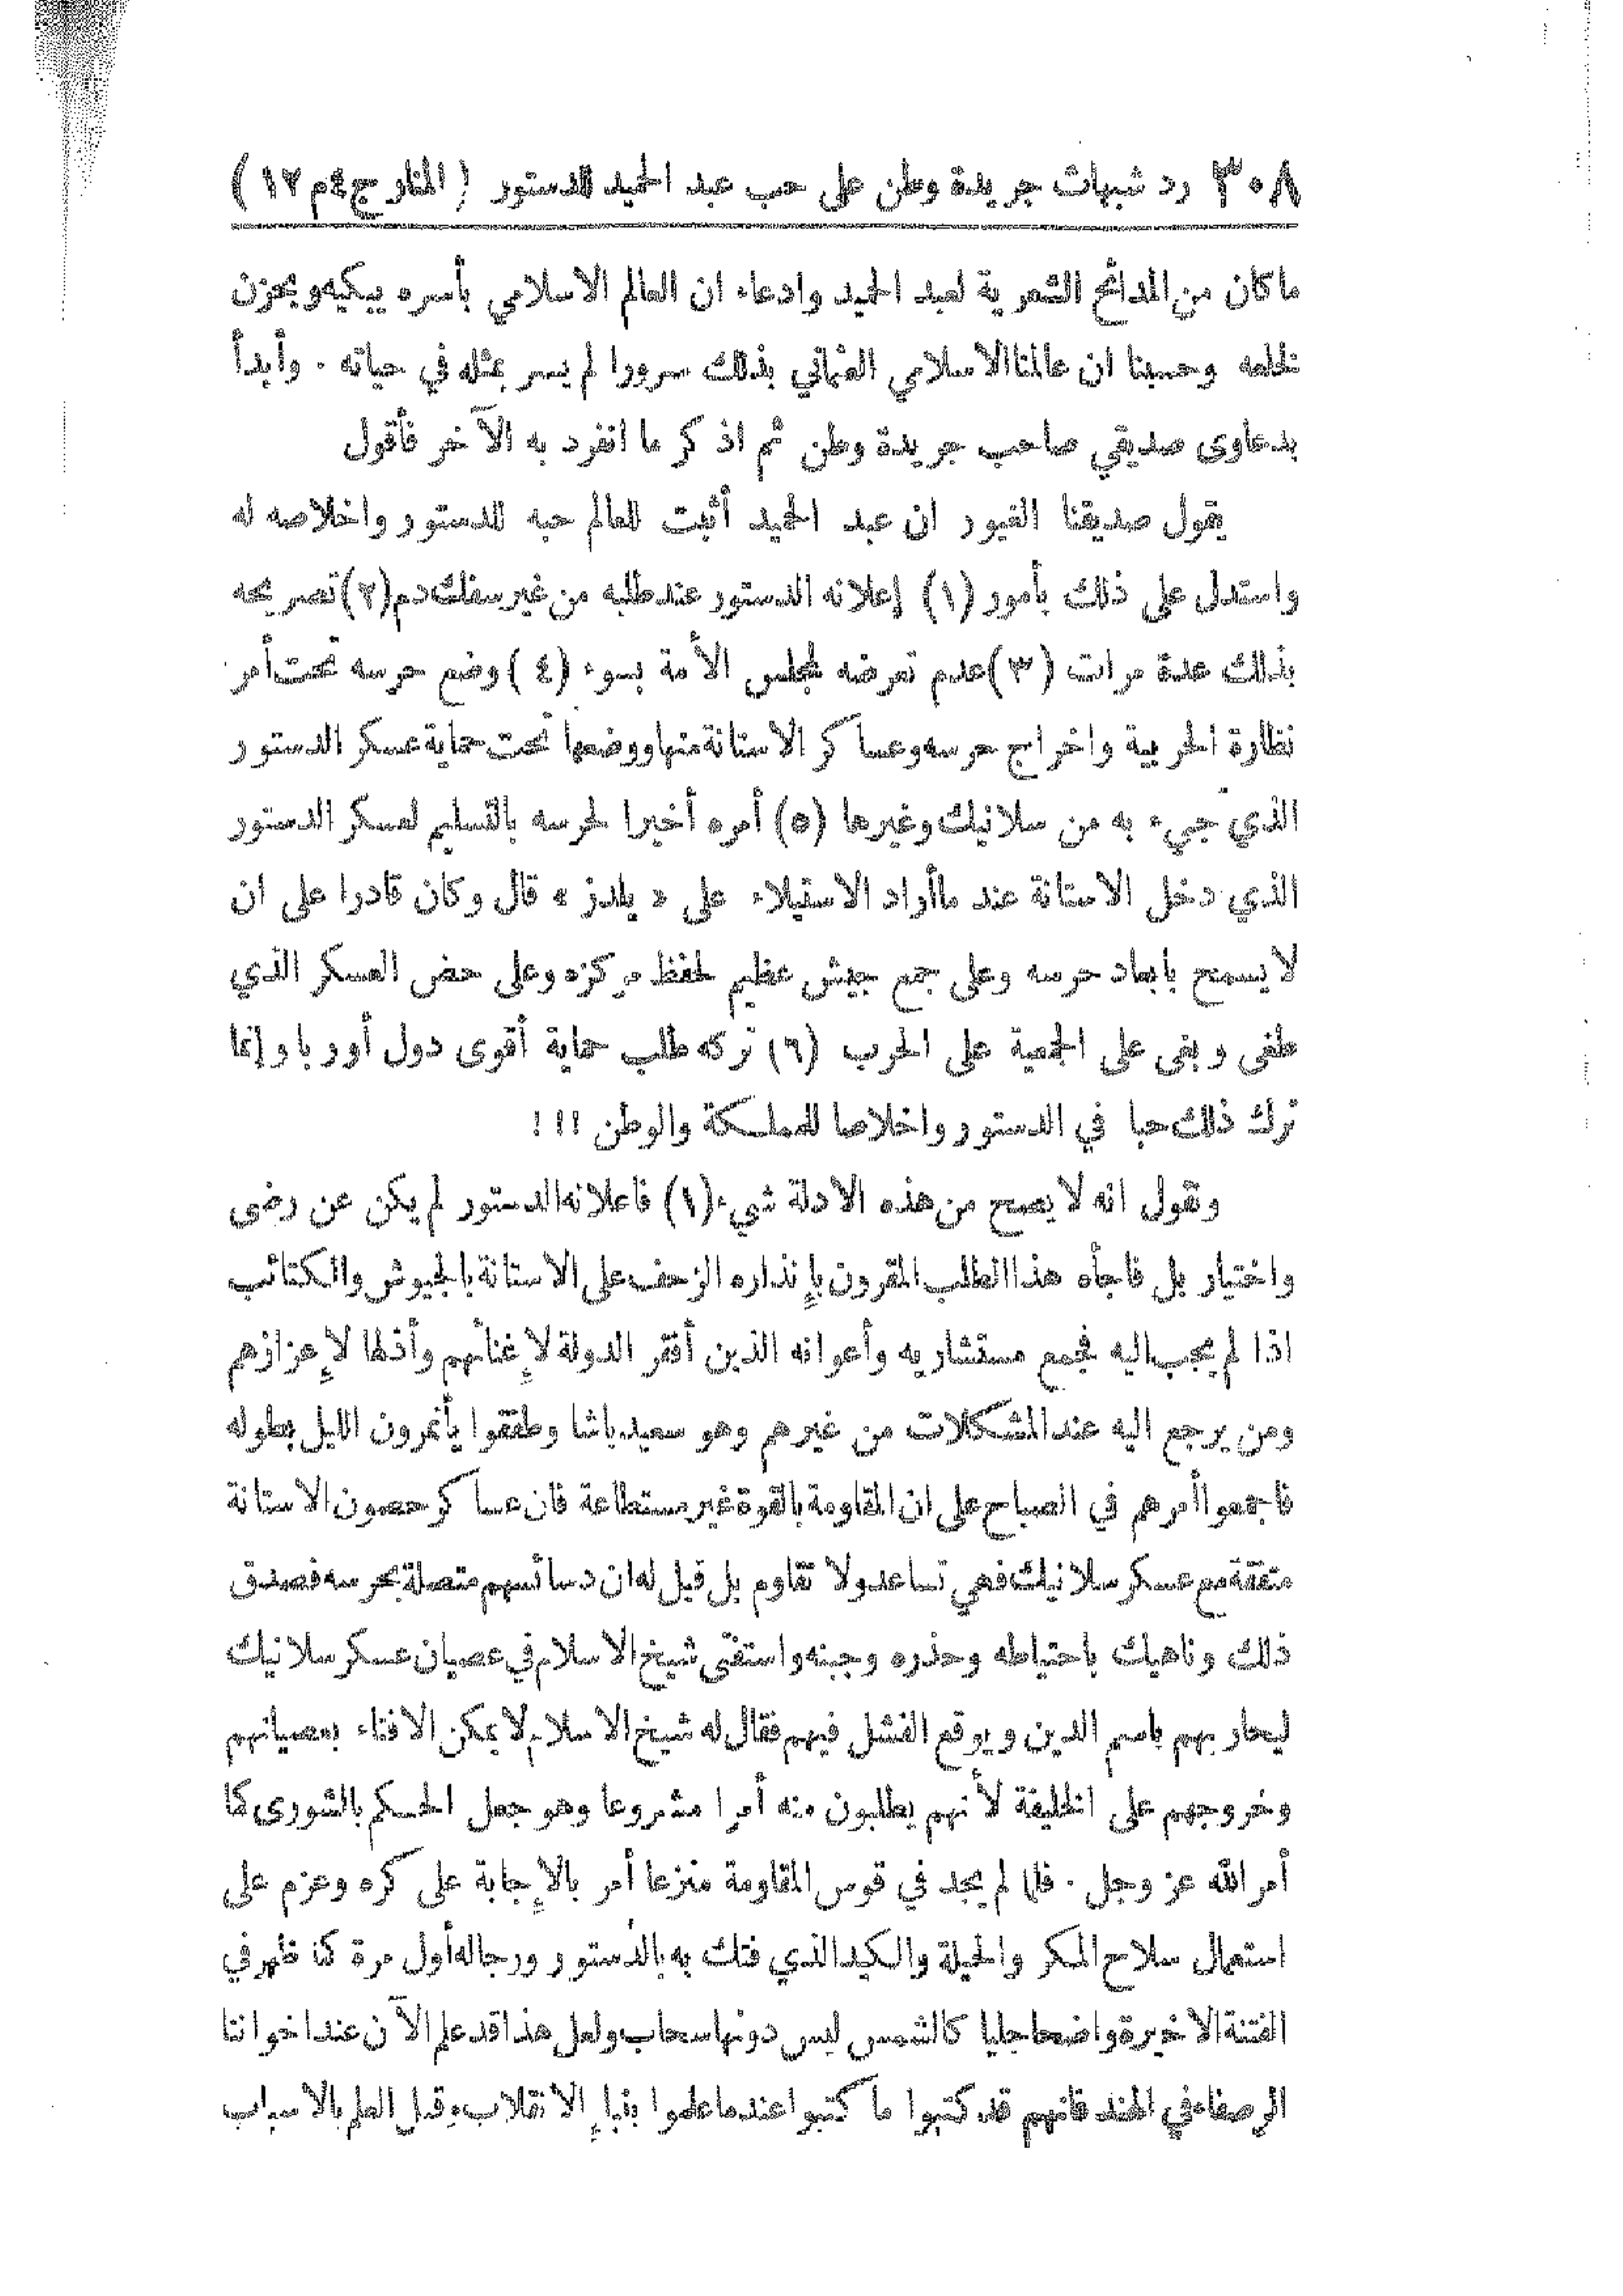 ٣٠٨ رد شبهات جريدة وطن على حب عبد الحميد للدستور ( المنار ج٤م١٢ )
ما كان من المدائح الشعرية لعبد الحميد وادعاء ان العالم الاسلامي بأسره يبكيه ويحزن
لخلعه وحسبنا ان عالمنا الاسلامي العثماني بذلك سرورا لم يسر بمثله في حياته . وأبدأ
بدعاوى صديقي صاحب جريدة وطن ثم اذكر ما انفرد به الآخر فأقول
يقول صديقنا الغيور ان عبد الحميد أثبت للعالم حبه للدستور واخلاصه له
واستدل على ذلك بأمور (١) إعلانه الدستور عند طلبه من غير سفك دم (٢) تصريحه
بذلك عدة مرات (٣) عدم تعرضه لمجلس الأمة بسوء (٤) وضع حرسه تحت أمر
نظارة الحربية واخراج حرسه وعساكر الاستانة منها ووضعها تحت حماية عسكر الدستور
الذي جيء به من سلانيك وغيرها (٥) أمره أخيرا لحرسه بالتسليم لعسكر الدستور
الذي دخل الاستانة عند ما أراد الاستيلاء على « يلدز » قال وكان قادرا على ان
لا يسمح بابعاد حرسه وعلى جمع جيش عظيم لحفظ مركزه وعلى حض العسكر الذي
طغى وبغى على الجمعية على الحرب (٦) تركه طلب حماية أقوى دول أوربا وإنما
ترك ذلك حبا في الدستور واخلاصا للمملكة والوطن !!!
ونقول انه لا يصح من هذه الادلة شيء (١) فاعلانه الدستور لم يكن عن رضى
واختيار بل فاجأه هذا الطلب المقرون بإنذاره الزحف على الاستانة بالجيوش والكتائب
اذا لم يجب اليه فجمع مستشاريه وأعوانه الذين أفقر الدولة لإغنائهم وأذلها لإعزازهم
ومن يرجع اليه عند المشكلات من غيرهم وهو سعيد باشا وطفقوا يأتمرون الليل بطوله
فأجمعوا أمرهم في الصباح على ان المقاومة بالقوة غير مستطاعة فان عساكر حصون الاستانة
متفقة مع عسكر سلانيك فهي تساعد ولا تقاوم بل قيل له ان دسائسهم متصلة بحرسه فصدق
ذلك وناهيك باحتياطه وحذره وجبنه واستفتى شيخ الاسلام في عصيان عسكر سلانيك
ليحاربهم باسم الدين ويوقع الفشل فيهم فقال له شيخ الاسلام لا يمكن الافتاء بعصيانهم
وخروجهم على الخليفة لأنهم يطلبون منه أمرا مشروعا وهو جعل الحكم بالشورى كما
أمر الله عز وجل . فلما لم يجد في قوس المقاومة منزعا أمر بالإجابة على كره وعزم على
استعمال سلاح المكر والحيلة والكيد الذي فتك به بالدستور ورجاله أول مرة كما ظهر في
الفتنة الاخيرة واضحا جليا كالشمس ليس دونها سحاب ولعل هذا قد علم الآن عند اخواننا
الرصفاء في الهند فانهم قد كتبوا ما كتبوا عند ما علموا بنبإ الانقلاب وقبل العلم بالاسباب